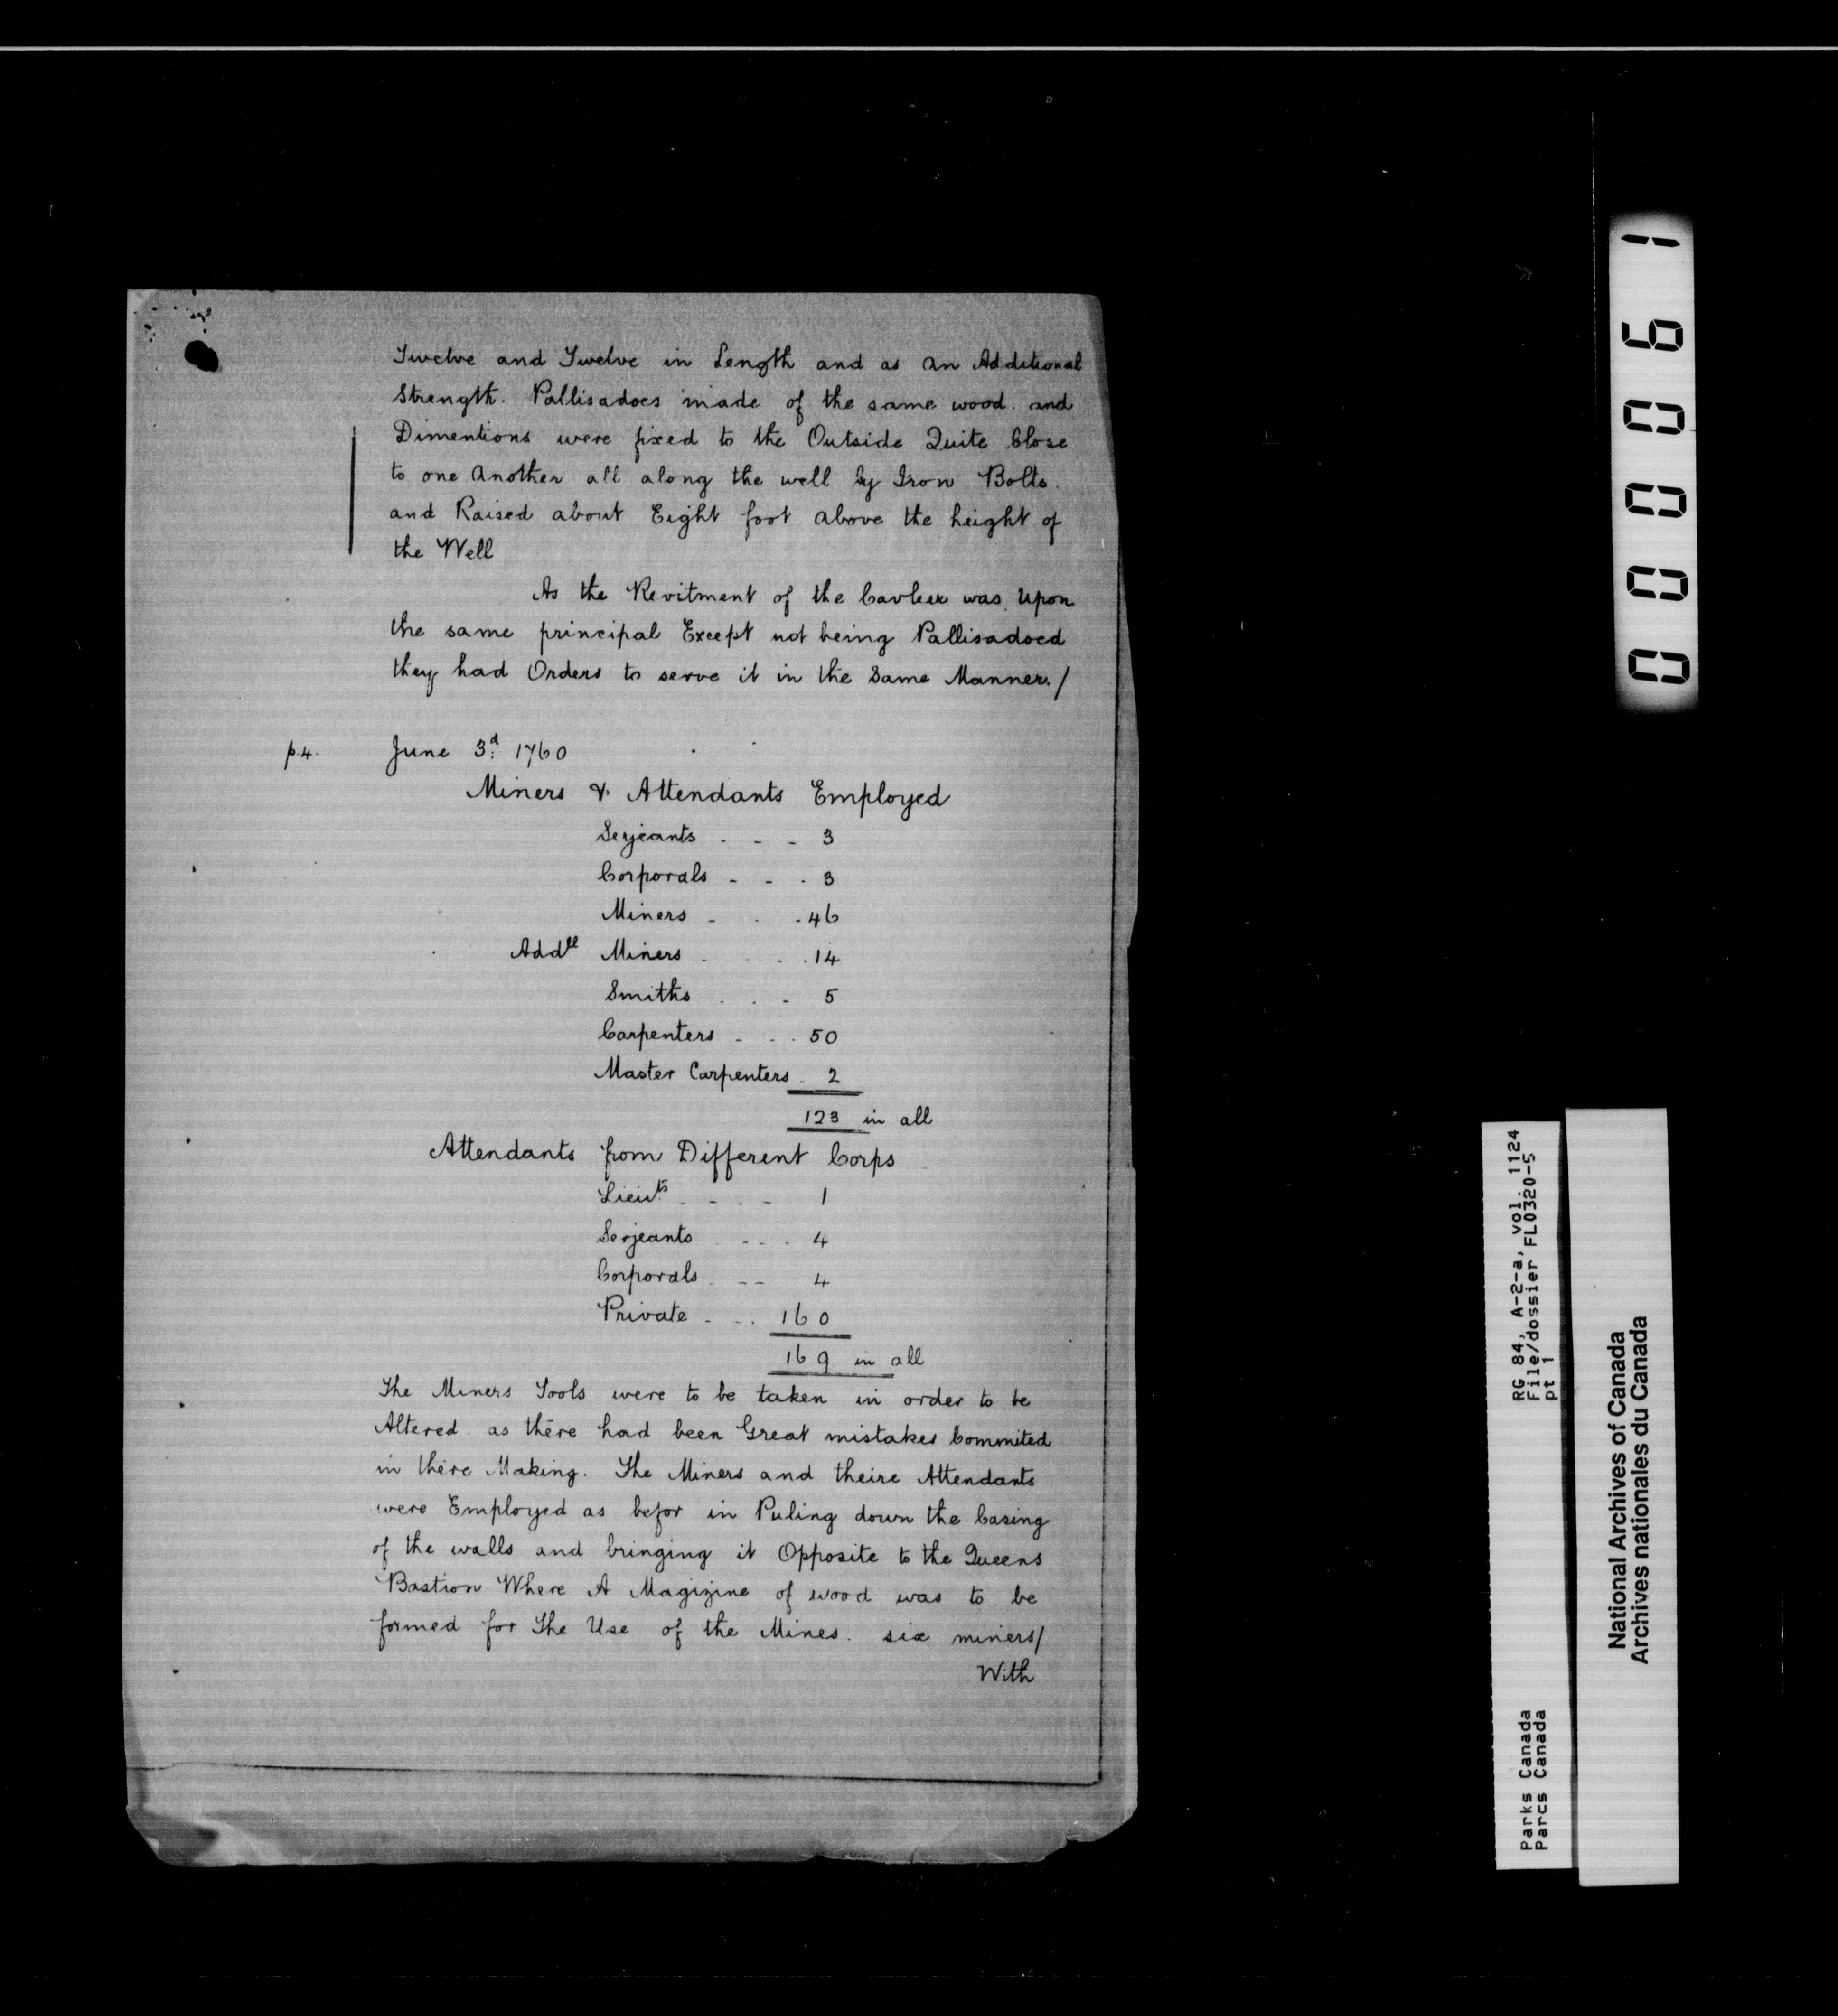 Twelve and Twelve in Length and as an Additional
Strength. Pallisadoes made of the same wood. and
Dimentions were fixed to the Outside Quite Close
to one Another all along the well by Iron Bolts.
and Raised about Eight foot above the height of
the Well
As the Revitment of the was Upon
the same principal Except not being Pallisadoed
they had Orders to serve it in the Same Manner./
p.4. June 3d: 1760
Miners & Attendants Employed
Serjeants - - - 3
Corporals - - - 3
Miners - - - 46
Addll Miners - - - 14
Smiths - - - 5
Carpenters - - - 50
Master Carpenters - 2
123 in all
Attendants from Different Corps
Lieuts - - - - 1
Serjeants - - - - 4
Corporals - - - 4
Private - - - 160
169 in all
The Miners Tools were to be taken in order to be
Altered. as there had been Great mistakes Commited
in there Making. The Miners and theire Attendants
were Employed as befor in Puling down the Casing
of the walls and bringing it Opposite to the Queens
Bastion Where A Magizine of wood was to be
formed for The Use of the Mines. six miners/
With
000061
RG 84, A-2-a, vol. 1124
File/dossier FL0320-5
pt 1
Parks Canada
Parcs Canada
National Archives of Canada
Archives nationales du Canada